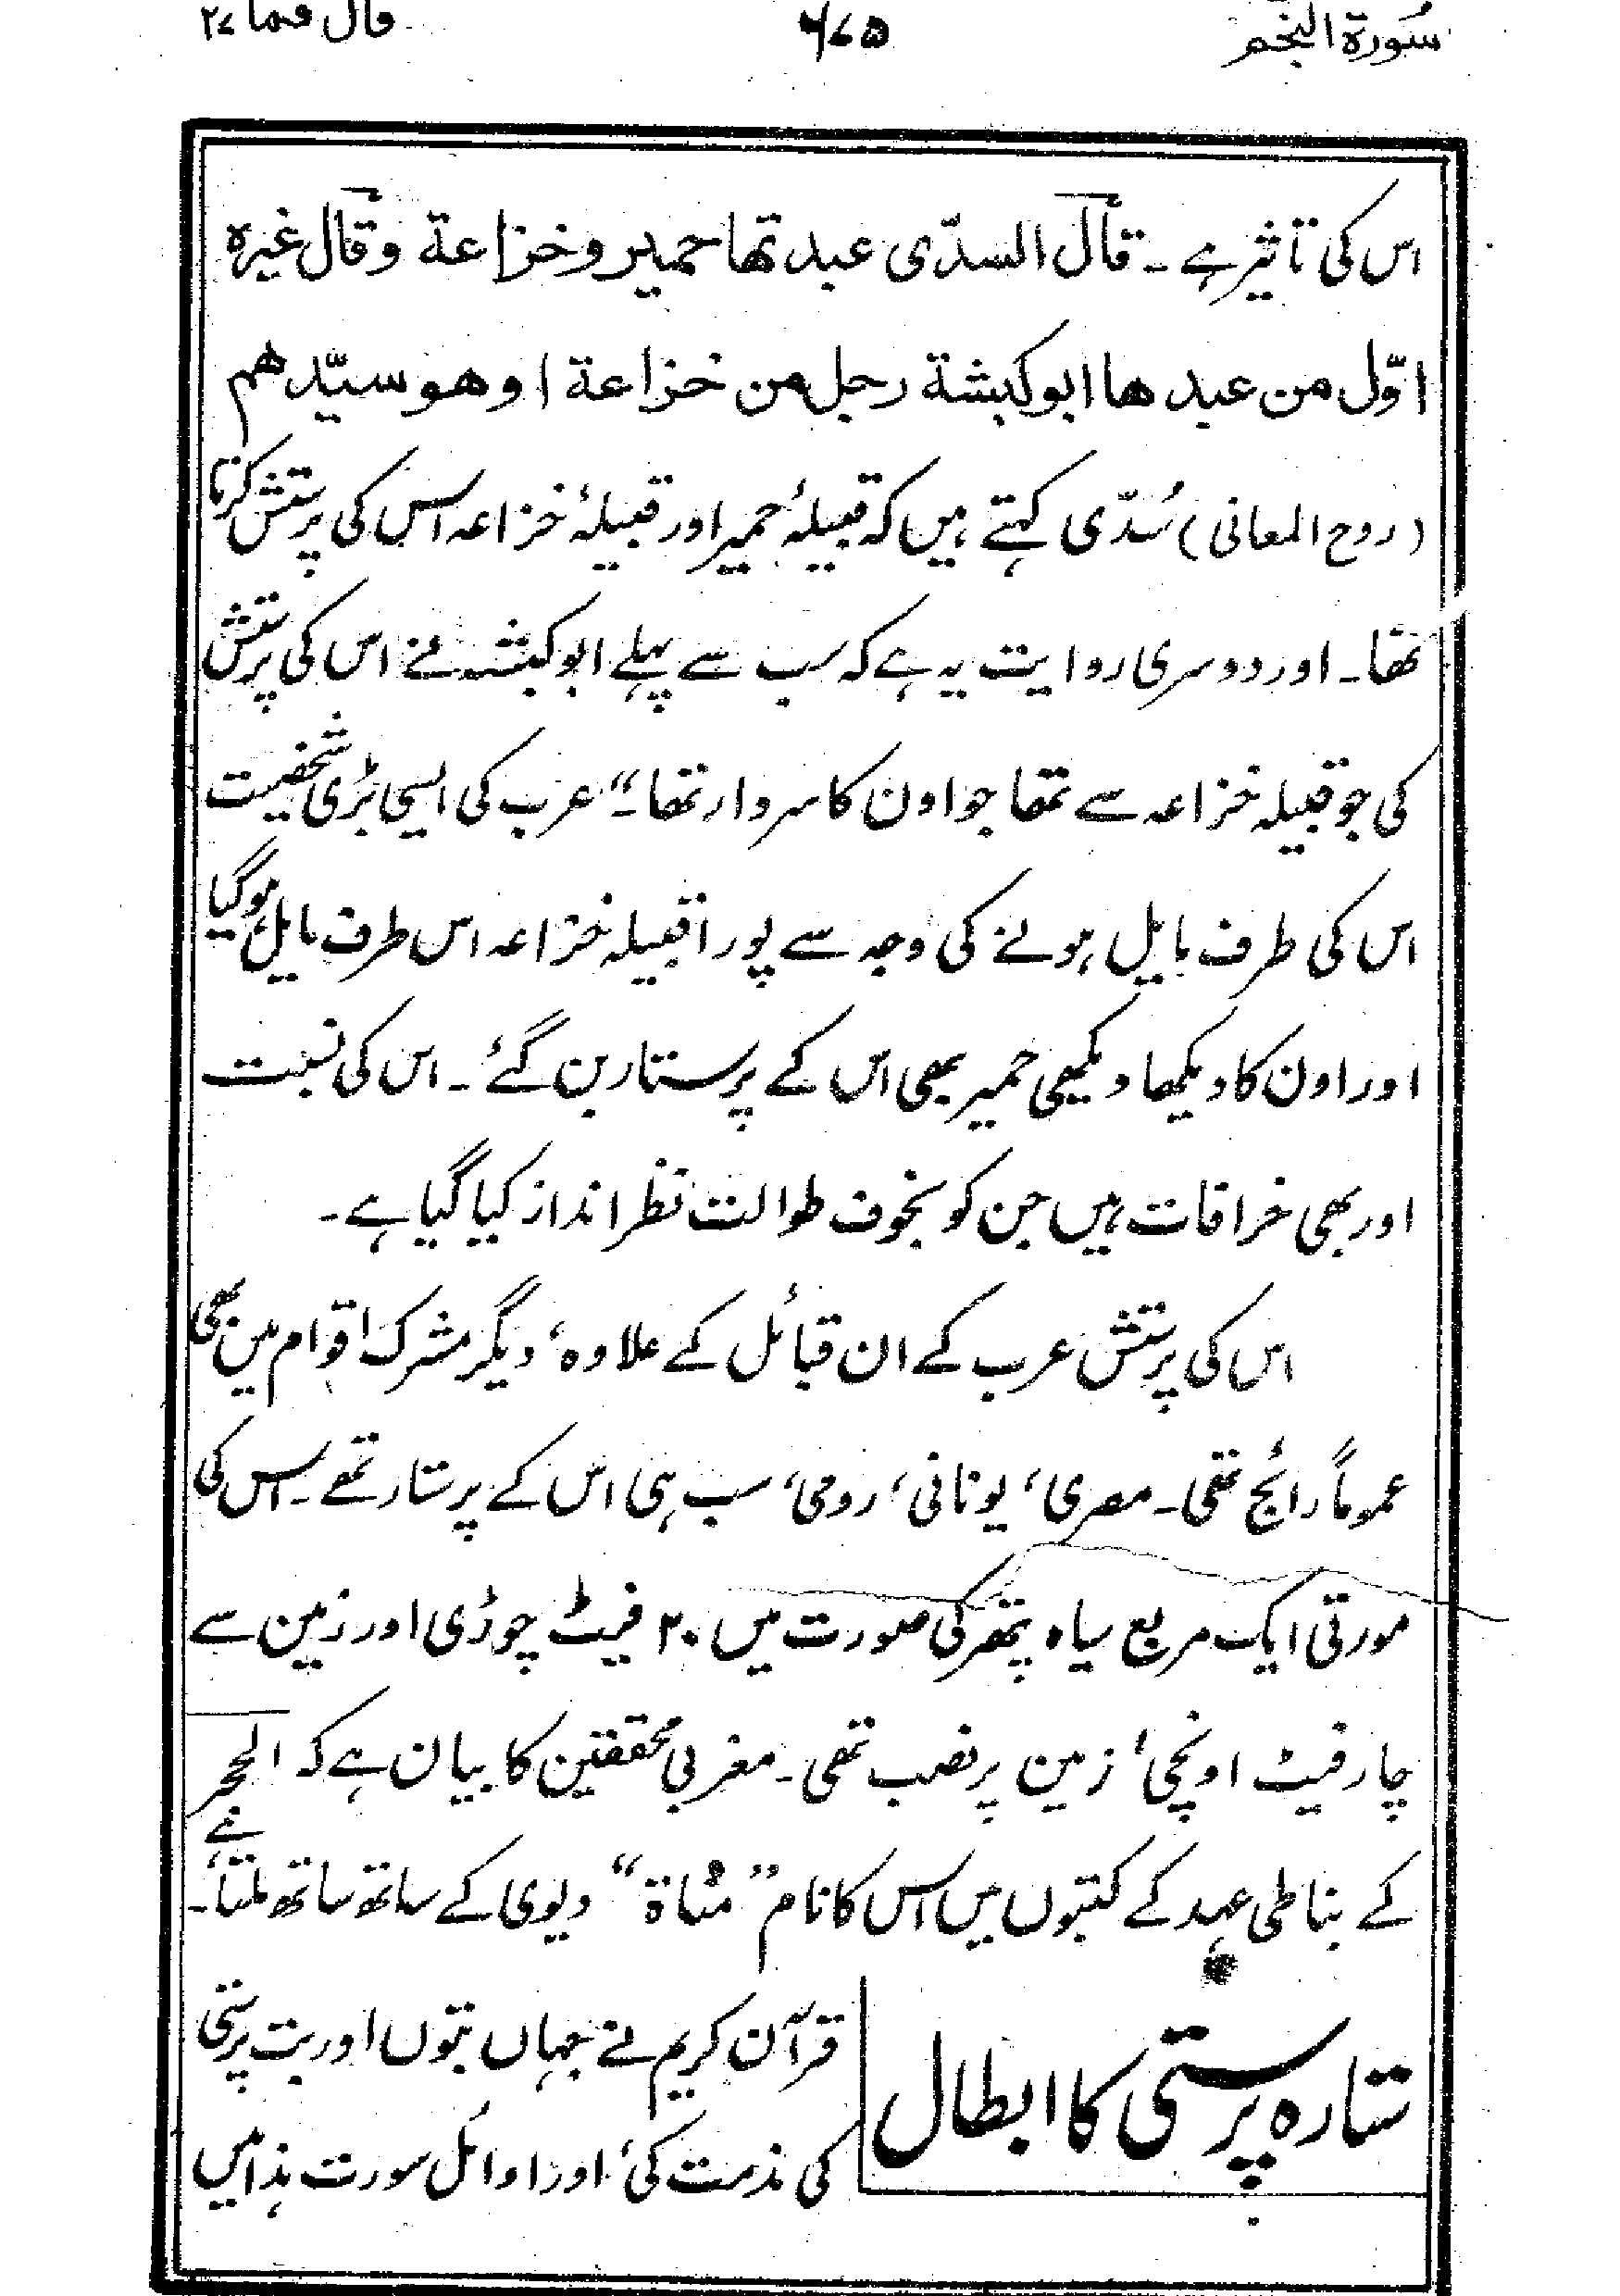 سُورة النجم ۶۷۵ قال فما ۲۷
اس کی تاثیر ہے ۔ قال السدّی عبد تھا حمیر و خزاعة وقال غیرہ
اوّل من عبد ھا ابو کبشة رجل من خزاعة او ھو سیّد ھم
(روح المعانی) سُدّی کہتے ہیں کہ قبیلۂ حمیر اور قبیلۂ خزاعہ اس کی پرستش کرتا
تھا ۔ اور دوسری روایت یہ ہے کہ سب سے پہلے ابو کبشہ نے اس کی پرستش
کی جو قبیلہ خزاعہ سے تھا جو اون کا سردار تھا ۔“ عرب کی ایسی بڑی شخصیت
اس کی طرف مایل ہونے کی وجہ سے پورا قبیلہ خزاعہ اس طرف مایل ہوگیا
اور اون کا دیکھا دیکھی حمیر بھی اس کے پرستار بن گئے ۔ اس کی نسبت
اور بھی خرافات ہیں جن کو بخوف طوالت نظر انداز کیا گیا ہے ۔
اس کی پرستش عرب کے ان قبائل کے علاوہ، دیگر مشرک اقوام میں بھی
عموماً رائج تھی ۔ مصری، یونانی، رومی، سب ہی اس کے پرستار تھے ۔ اس کی
مورتی ایک مربع سیاہ پتھر کی صورت میں ۲۰ فیٹ چوڑی اور زمین سے
چار فیٹ اونچی، زمین پر نصب تھی ۔ مغربی محققین کا بیان ہے کہ الحجر
کے نباطی عہد کے کتبوں میں اس کا نام ”مناة“ دیوی کے ساتھ ساتھ ملتا ہے ۔
ستارہ پرستی کا ابطال
قرآن کریم نے جہاں بتوں اور بت پرستی
کی مذمت کی، اور اوائل سورت ہذا میں